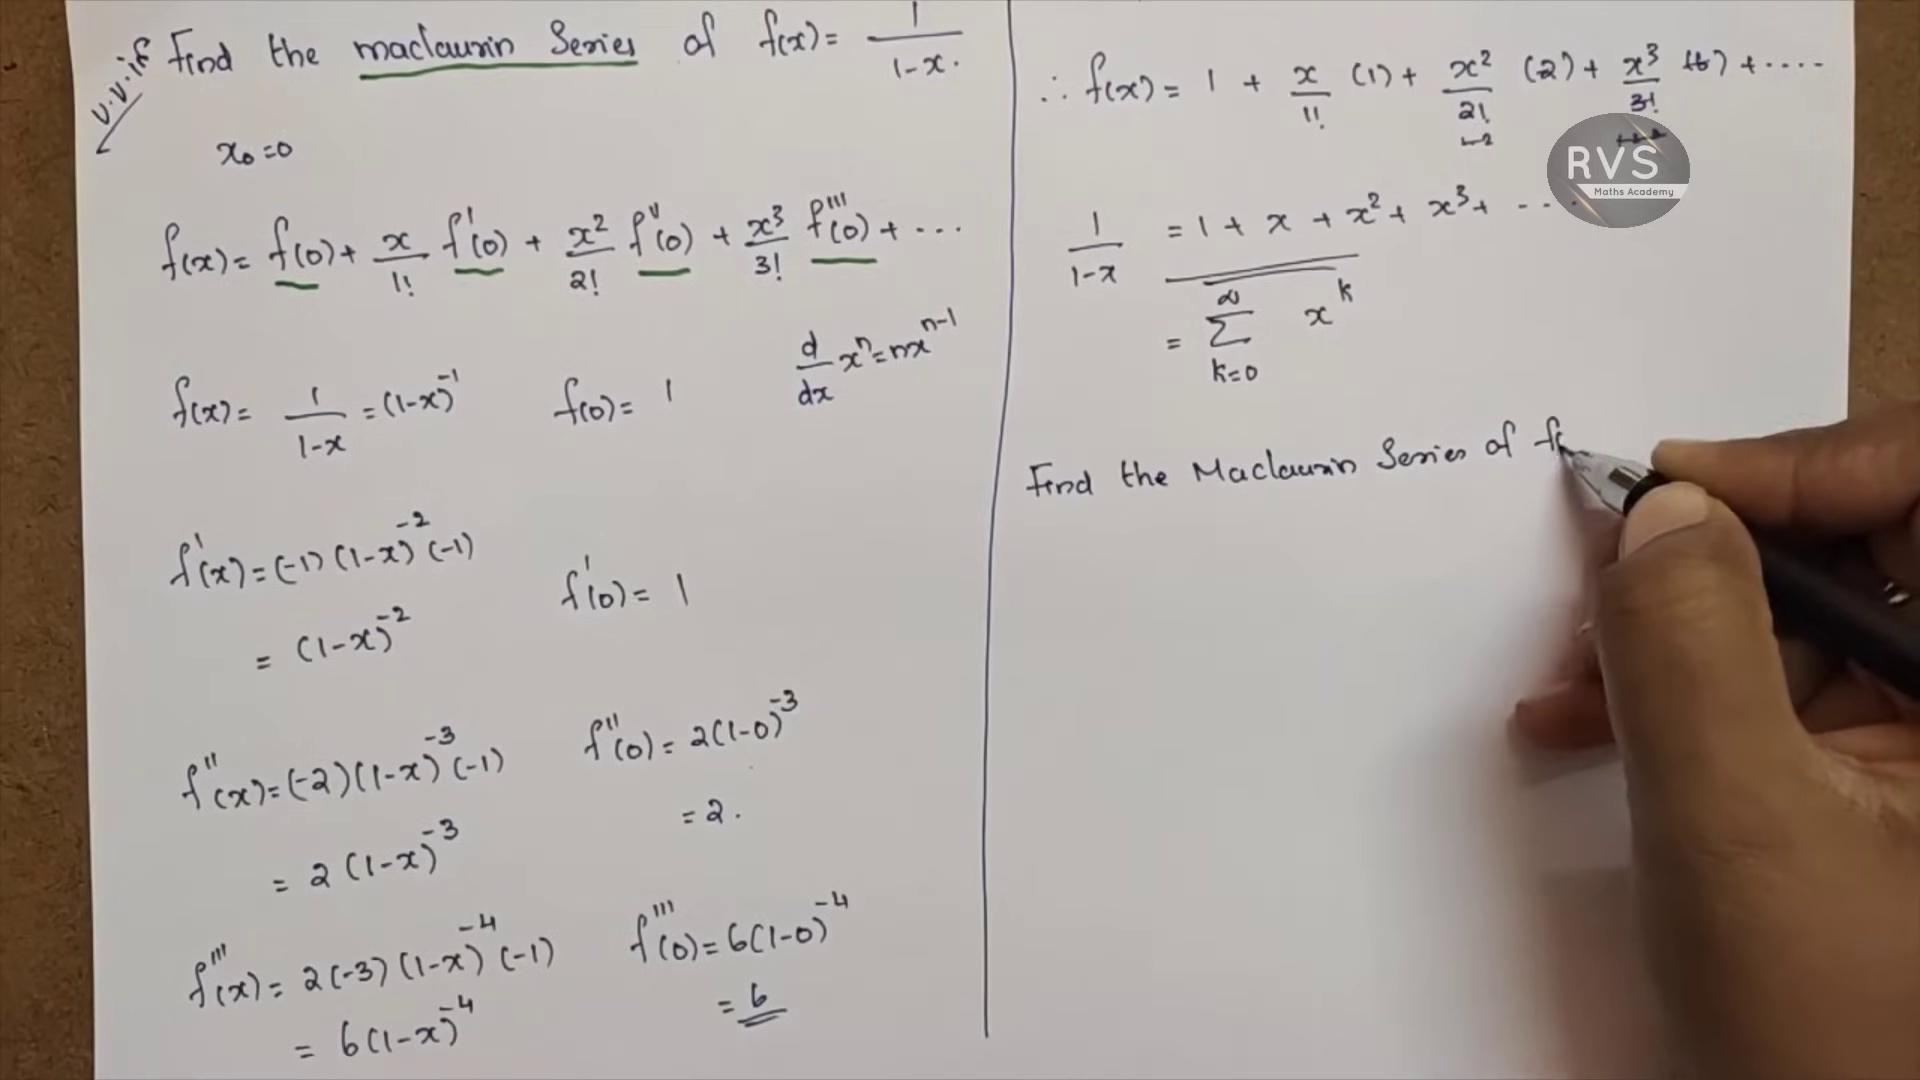 v.v.if
Find the maclaurin Series of f(x) = 1/1-x.
x₀=0
f(x) = f(0) + x/1! f'(0) + x²/2! f''(0) + x³/3! f'''(0) + ...
f(x) = 1/1-x = (1-x)⁻¹ f(0) = 1 d/dx xⁿ = nxⁿ⁻¹
f'(x) = (-1)(1-x)⁻²(-1)
= (1-x)⁻² f'(0) = 1
f''(x) = (-2)(1-x)⁻³(-1) f''(0) = 2(1-0)⁻³
= 2(1-x)⁻³ = 2.
f'''(x) = 2(-3)(1-x)⁻⁴(-1) f'''(0) = 6(1-0)⁻⁴
= 6(1-x)⁻⁴ = 6
∴ f(x) = 1 + x/1! (1) + x²/2! (2) + x³/3! (6) + ....
RVS
Maths Academy
1/1-x = 1 + x + x² + x³ + ....
= ∞ Σ k=0 xᵏ
Find the Maclaurin Series of f(